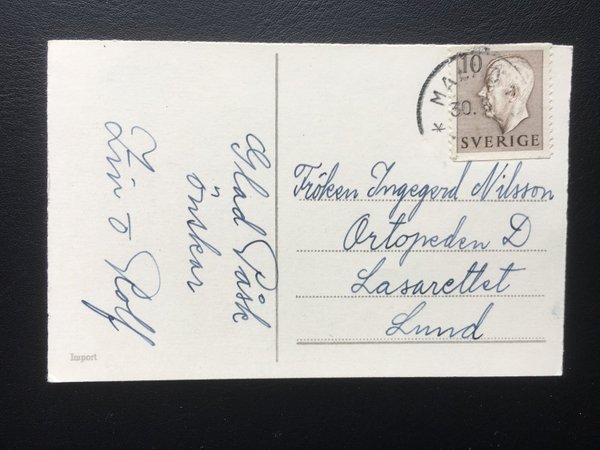 Glad Påsk
önskar
Rolf
Import
10
SVERIGE
MALMÖ
30.
Fröken Ingegerd Nilsson
Ortopeden D
Lasarettet
Lund